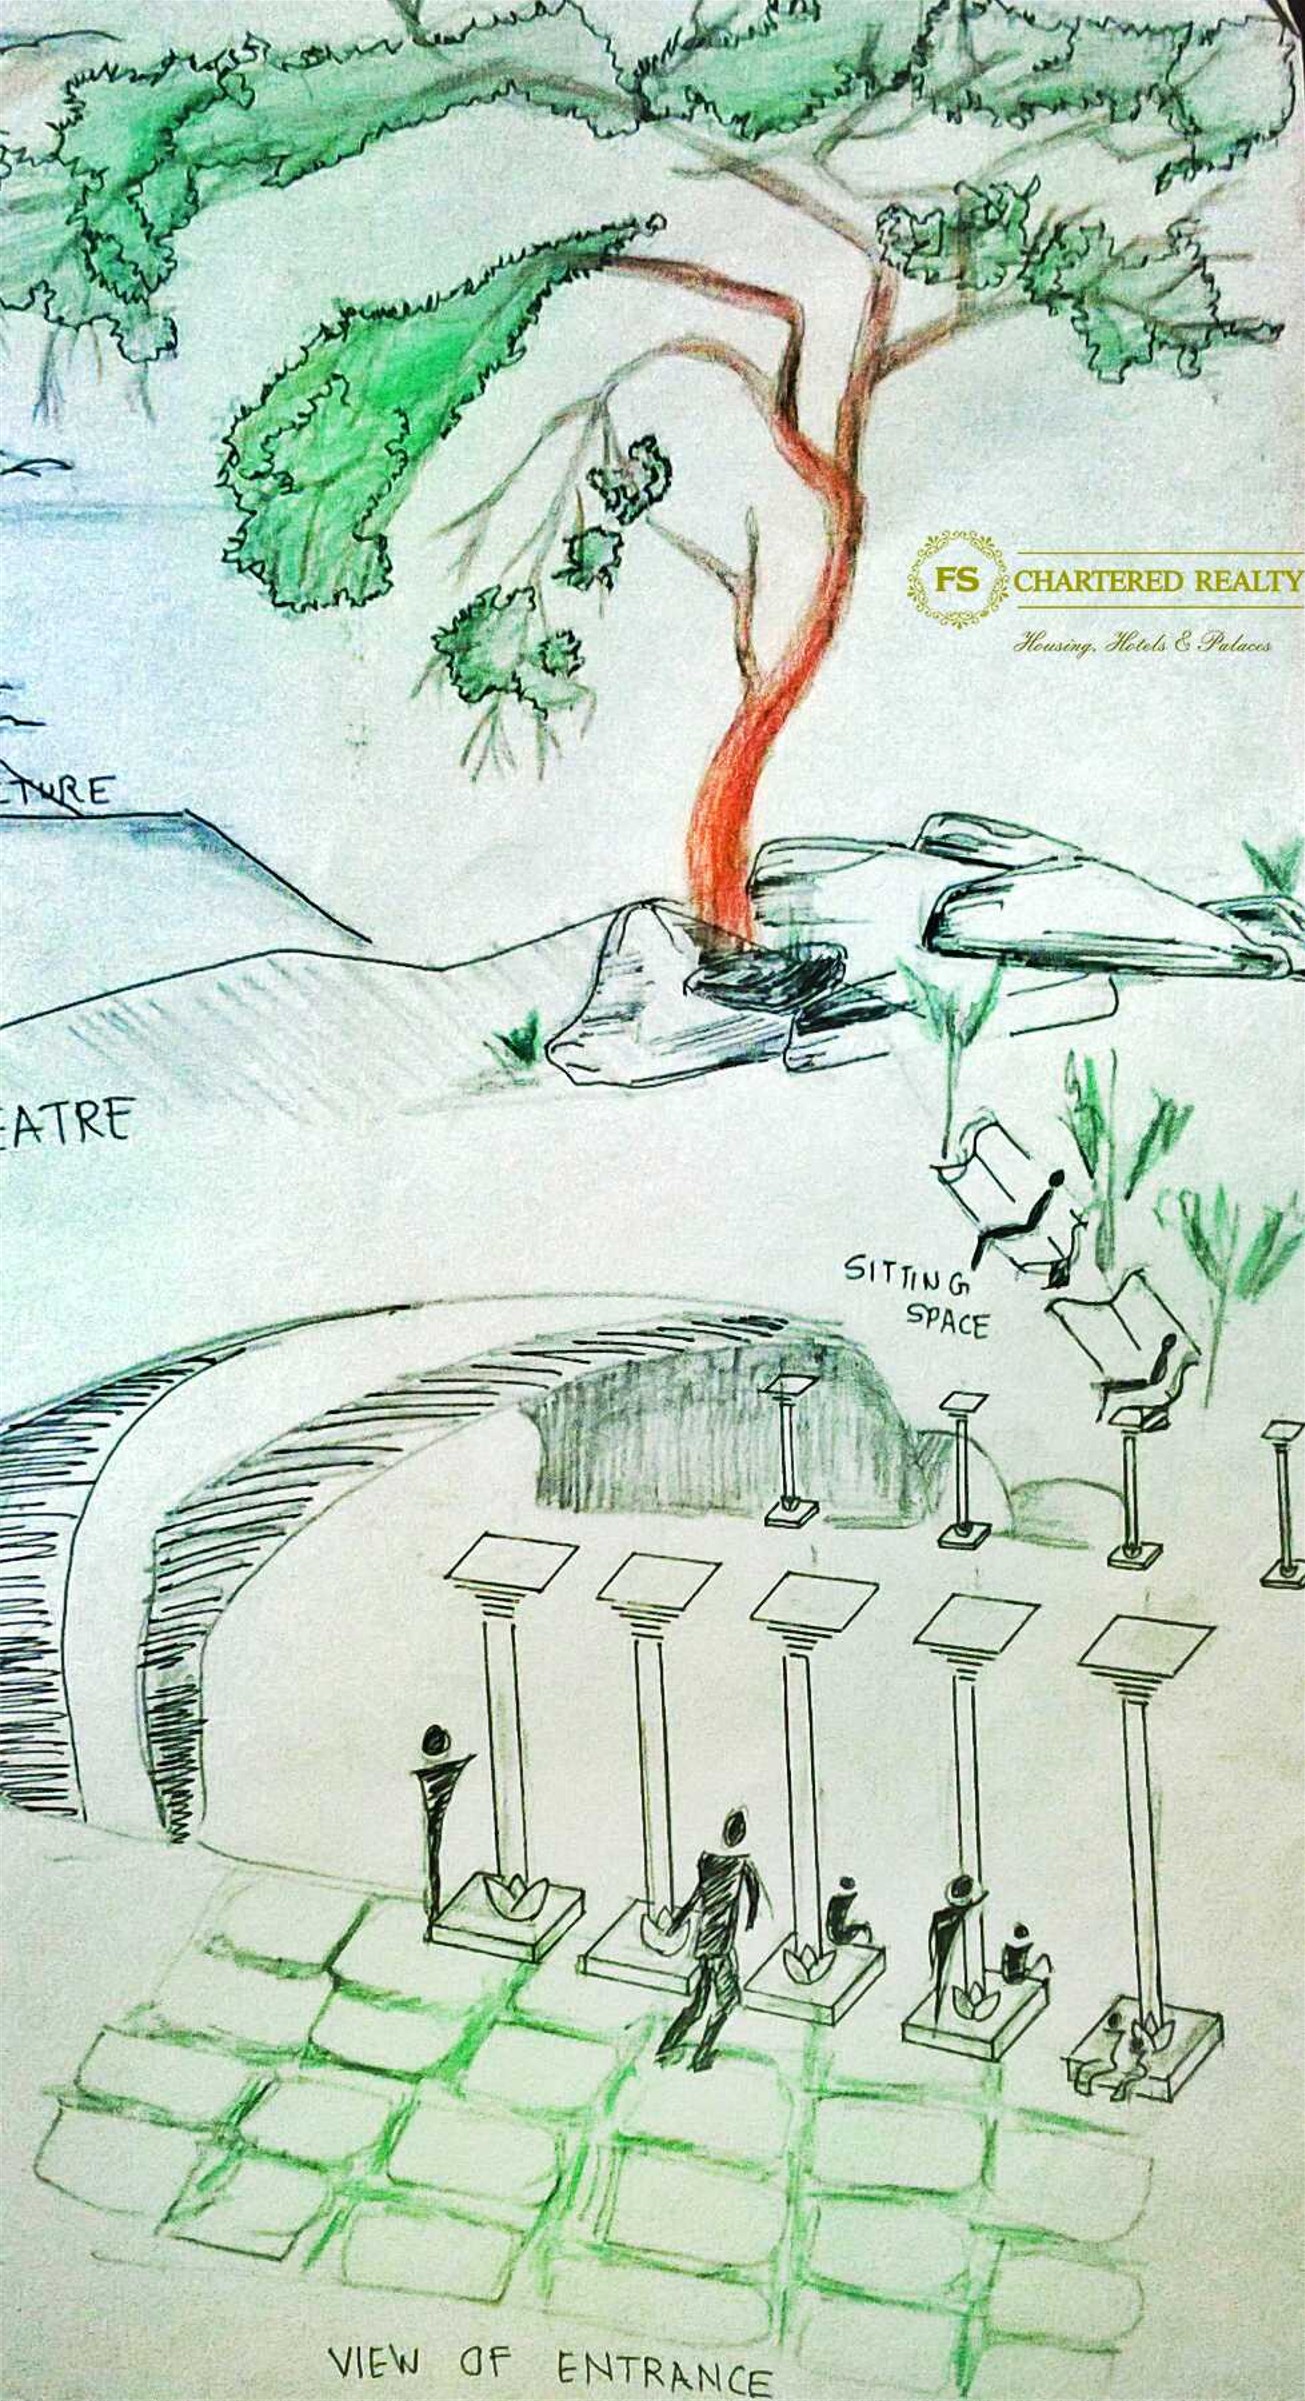 FS CHARTERED REALTY
Housing, Hotels & Palaces
TURE
EATRE
SITTING
SPACE
VIEW OF ENTRANCE